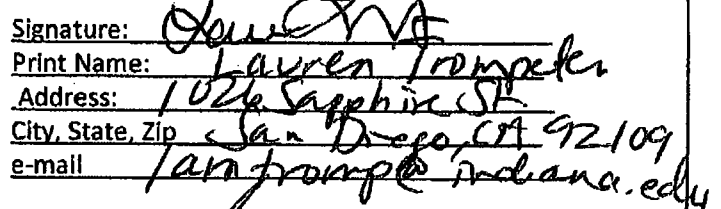 Signature:
Print Name: Lauren Trompeter
Address: 1026 Sapphire St
City, State, Zip San Diego, CA 92109
e-mail lamtromp@indiana.edu